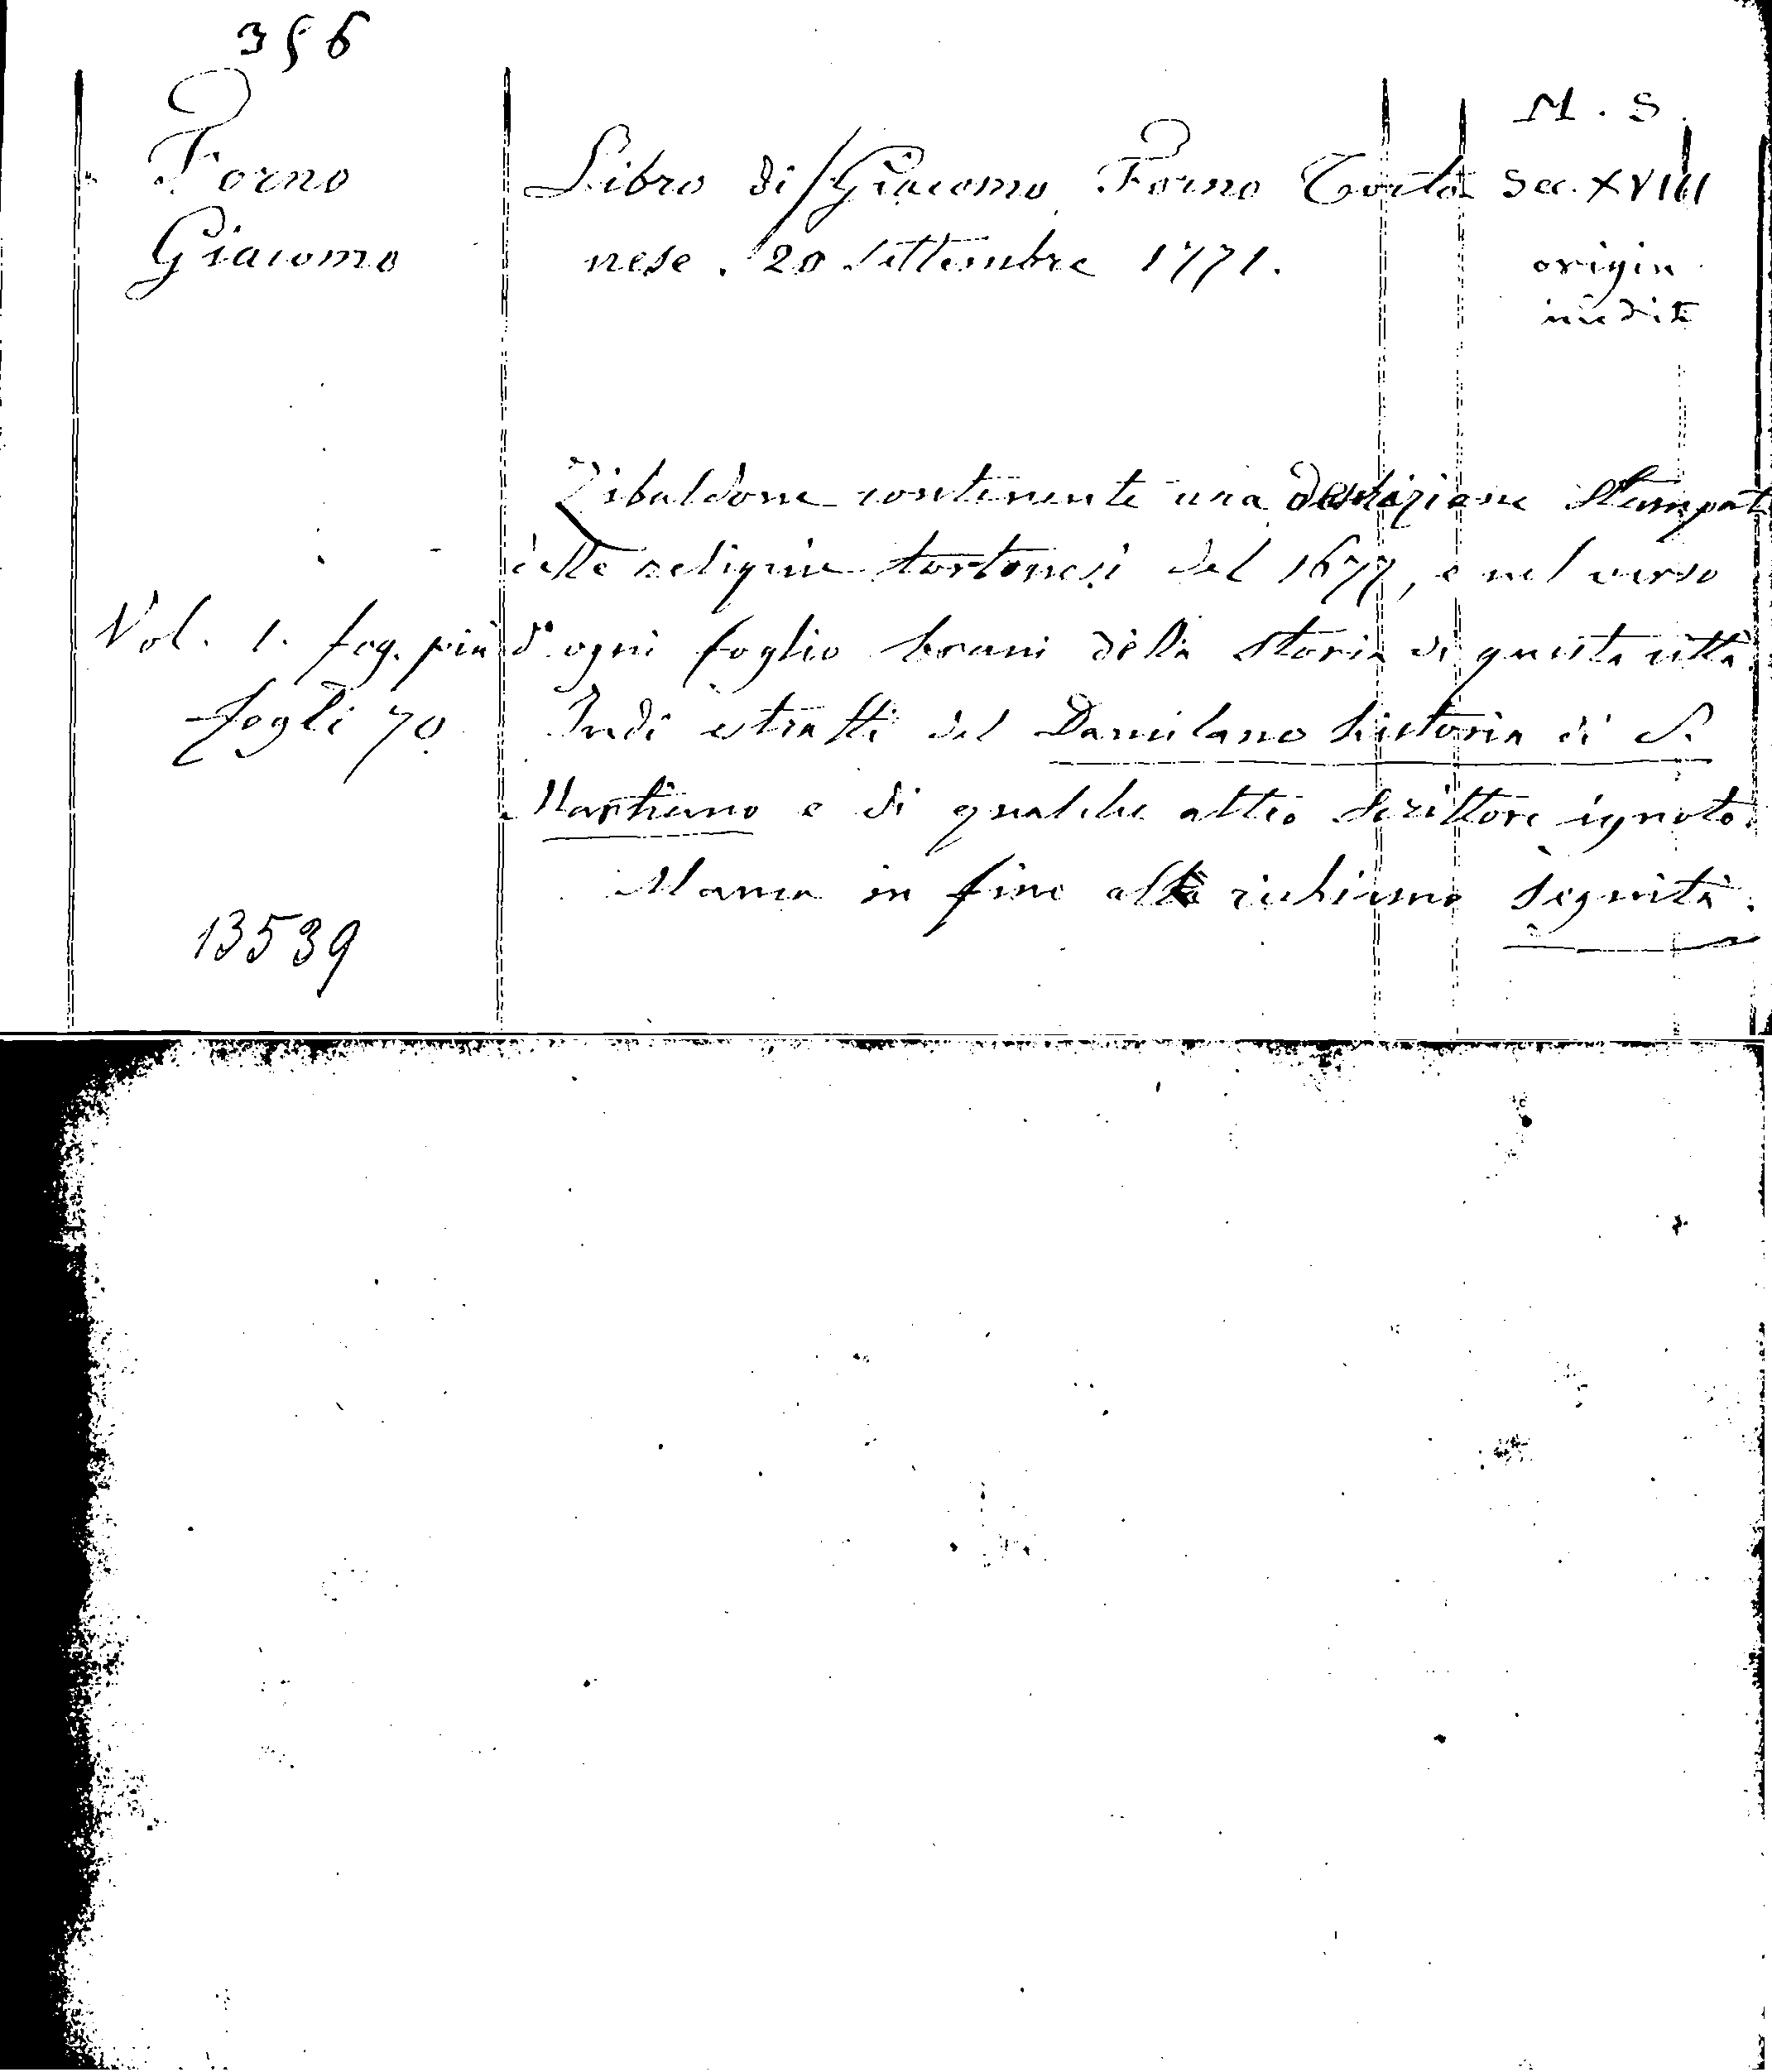 356
M. S.
Forno
Giacomo
Libro di Giacomo Forno Torto
nese. 20 Settembre 1771.
Sec. XVIII
origin
inedit
Zibaldone contenente una descrizione stampat
delle reliquie tortonesi del 1677, e nel verso
d'ogni foglio brani della storia di questa città.
Indi estratti del Damilano historia di S.
Marthiano e di qualche altro scrittore ignoto.
Manca in fine al richiamo seguita.
Vol. 1. fog. più
fogli 70.
13539